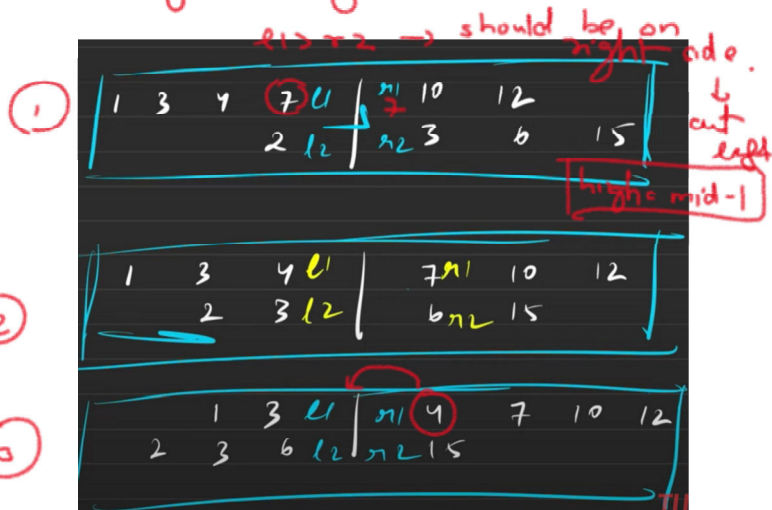 l1 > r2 → should be on
right side.
↓
cut
left
high = mid - 1
1
1 3 4 7 l1 | r1 7 10 12
2 l2 | r2 3 6 15
2
1 3 4 l1 | 7 r1 10 12
2 3 l2 | 6 r2 15
3
1 3 l1 | r1 4 7 10 12
2 3 6 l2 | r2 15